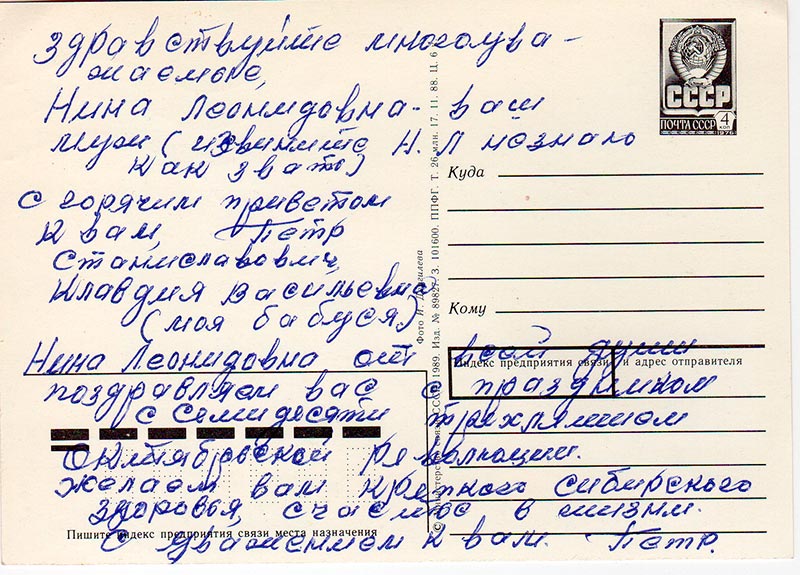 Здравствуйте многоува-
жаемые,
Нина Леонидовна - ваш
муж (извините Н. Л незнаю
как звать)
с горячим приветом
к вам, Петр
Станиславович,
Клавдия Васильевна
(моя бабуся)
Нина Леонидовна от всей души
поздравляем вас с праздником
с семидесяти трехлетием
октябрьской революции.
желаем вам крепкого сибирского
здоровья, счастье в жизни.
С уважением к вам. Петр.
СССР
ПОЧТА СССР 4 коп
1976
Куда
Кому
Индекс предприятия связи и адрес отправителя
Пишите индекс предприятия связи места назначения
Фото И.
связи СССР. 1989. Изд. № 89827. З. 101600. ППФГ. Т. 26 млн. 17. 11. 88. Ц. 6